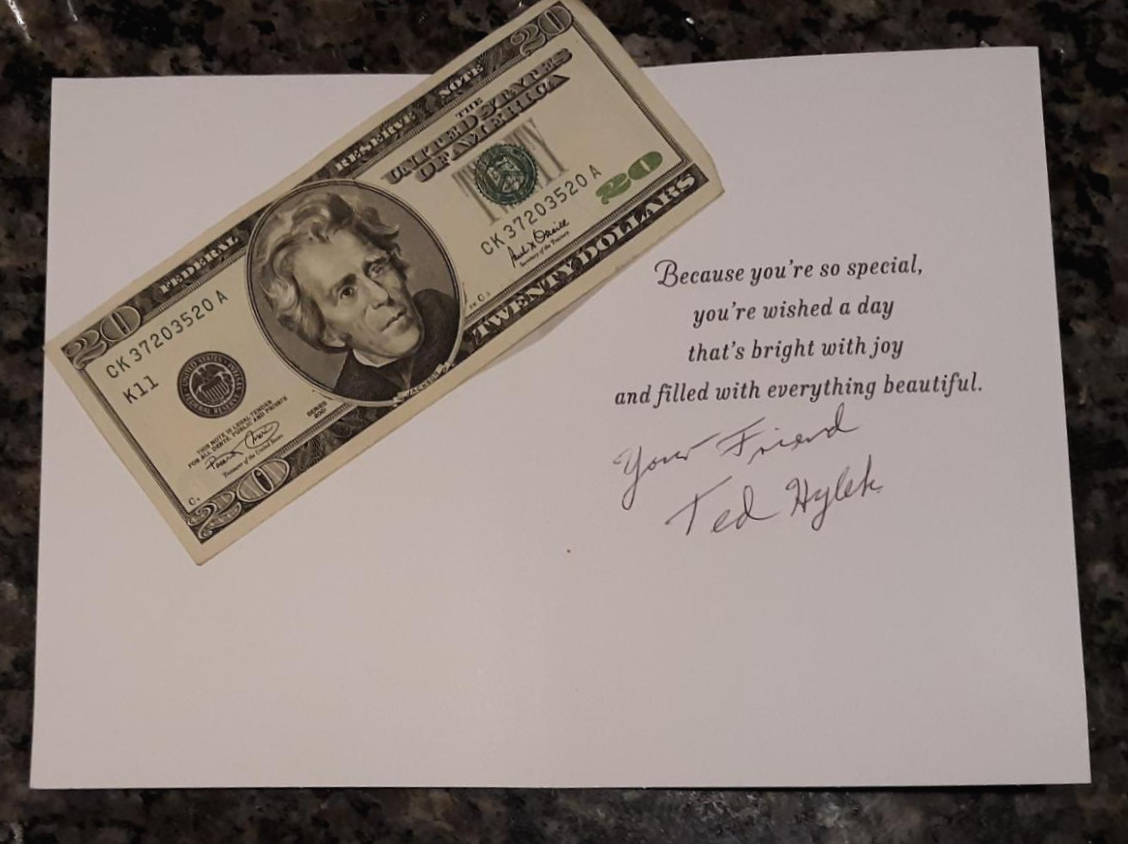 FEDERAL RESERVE NOTE
THE
UNITED STATES
OF AMERICA
20
20
CK 37203520 A
K11
THIS NOTE IS LEGAL TENDER
FOR ALL DEBTS, PUBLIC AND PRIVATE
Treasurer of the United States
SERIES
2001
CK 37203520 A
Secretary of the Treasury
20
20
TWENTY DOLLARS
Because you're so special,
you're wished a day
that's bright with joy
and filled with everything beautiful.
Your Friend
Ted Hylek